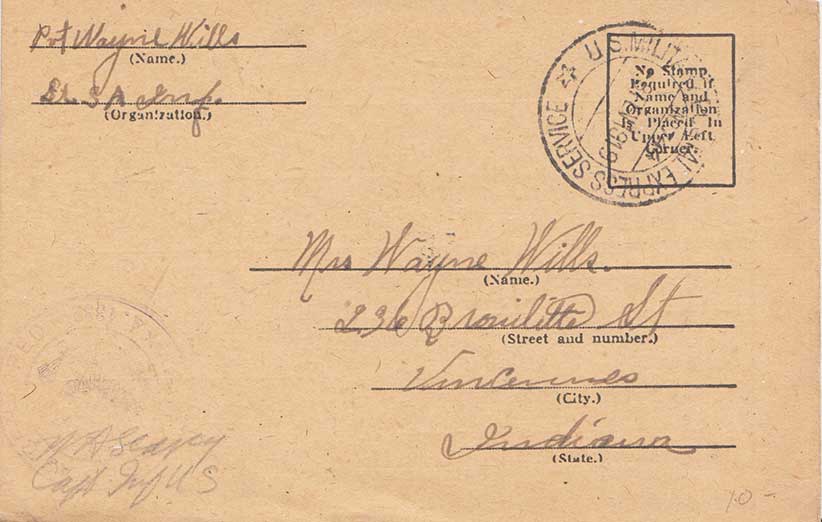 Pvt Wayne Wills
(Name.)
(Organization.)
U.S. MILITARY POSTAL EXPRESS SERVICE
1919
No Stamp
Required if
Name and
Organization
is Placed In
Upper Left
Corner.
Mrs Wayne Wills.
(Name.)
236 St
(Street and number.)
Vincennes
(City.)
Indiana
(State.)
Capt Inf US